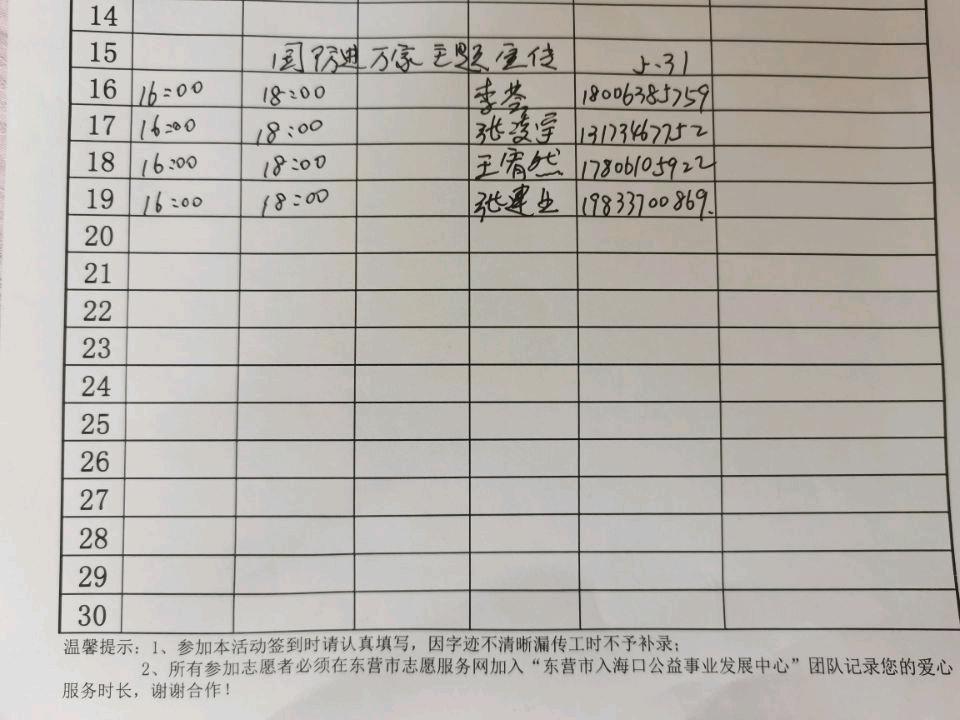 14
15 国防进万家主题宣传 5.31
16 16:00 18:00 李荟 18006385759
17 16:00 18:00 张凌宇 13173467752
18 16:00 18:00 王宥然 17806105922
19 16:00 18:00 张建业 19833700869.
20
21
22
23
24
25
26
27
28
29
30
温馨提示：1、参加本活动签到时请认真填写，因字迹不清晰漏传工时不予补录；
2、所有参加志愿者必须在东营市志愿服务网加入“东营市入海口公益事业发展中心”团队记录您的爱心
服务时长，谢谢合作！